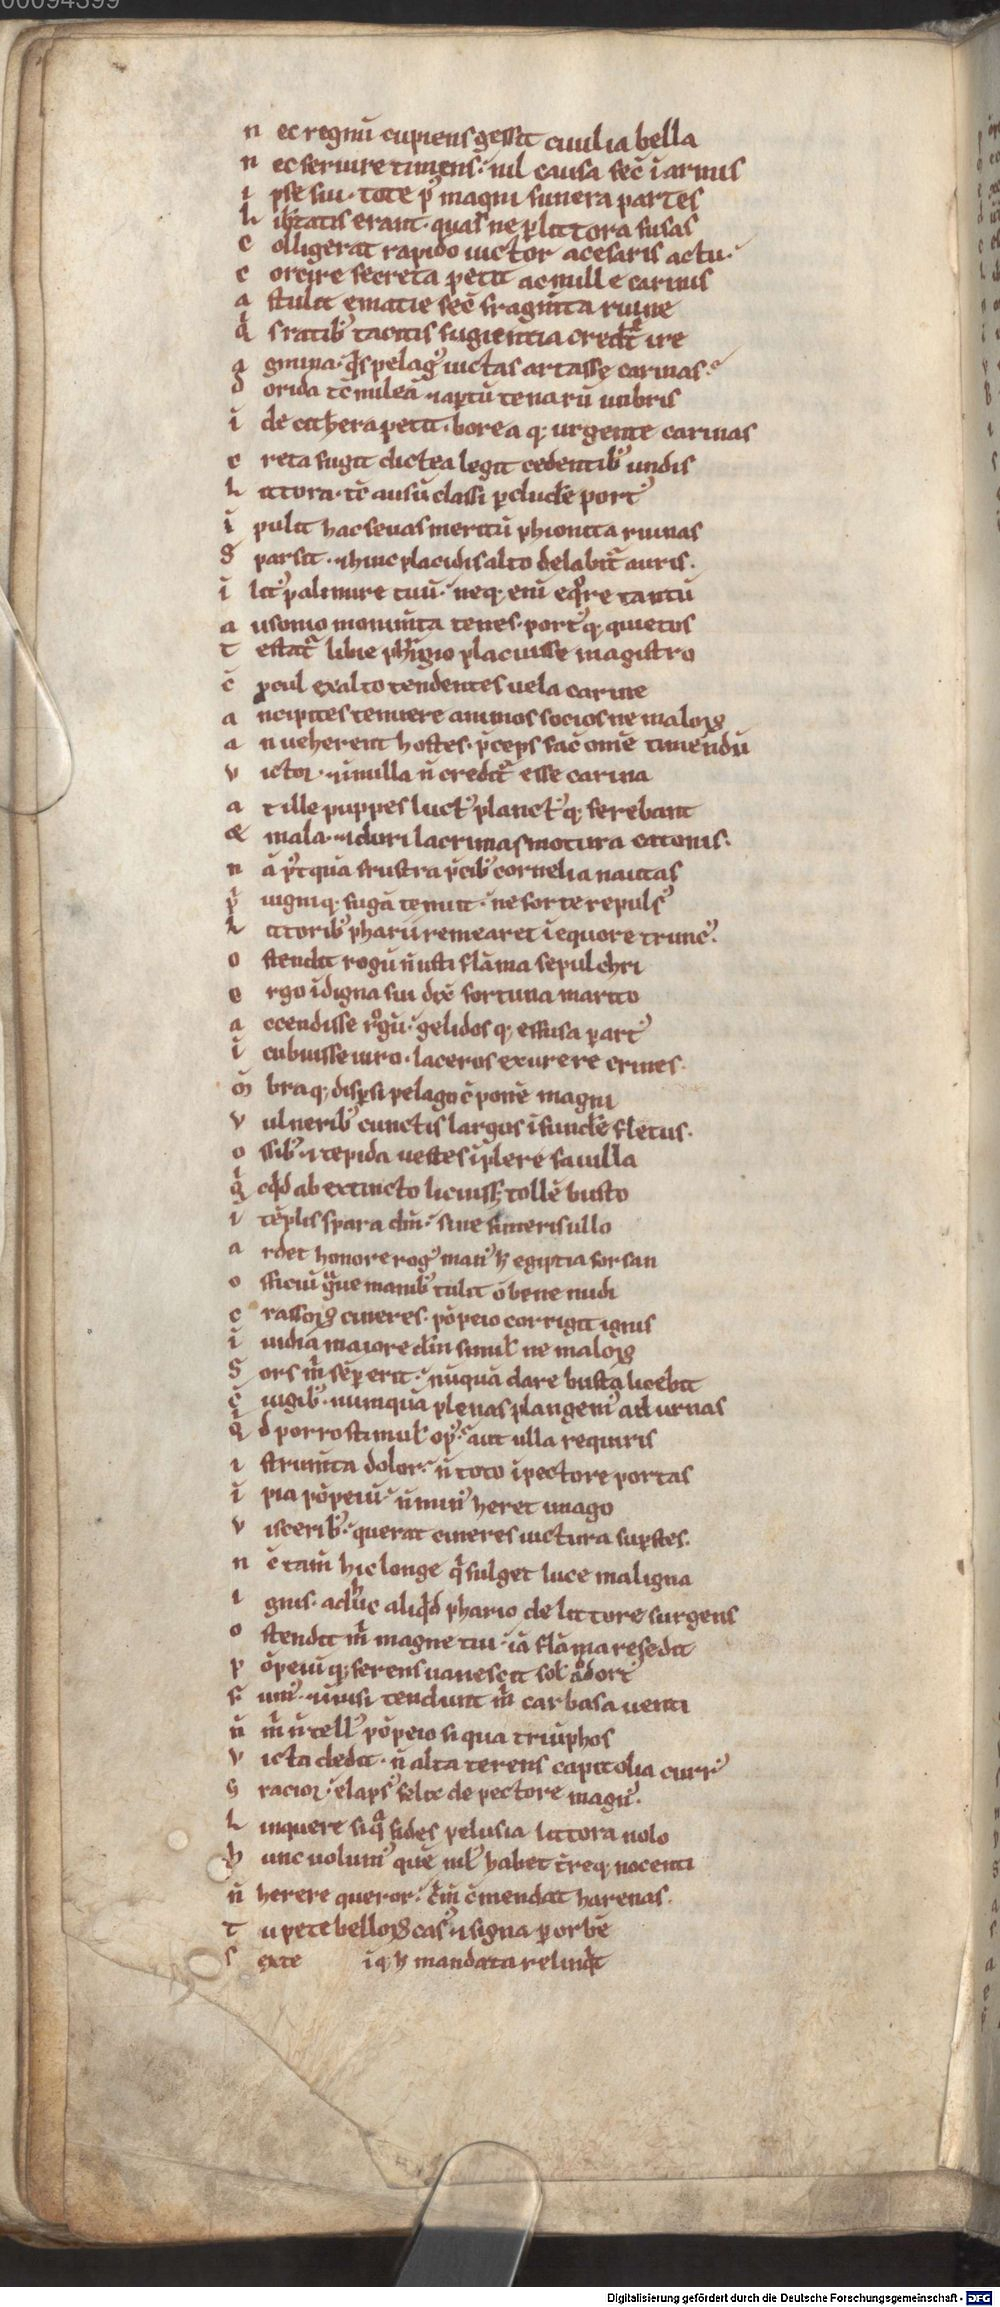 00094399
n ec regnū cupiens gessit ciuilia bella
n ec seruire timens. nil causa fec̄ ī armis
i pse sui. tote p᷒ magni funera partes
l ib͛tatis erant. quas ne ꝑ littora fusas
c olligerat rapido uictor acesaris actu.
c orcire secreta petit ac mille carinis
a stulit ematie fec̄ fragm̄ta ruine
qͥ s ratib᷒ tacitis fugientia credͥt ire
a gmina. qͥs pelag᷒ uictas artasse carinas.
d orida tc̄ mileā ⁊ aptū tenarū umbris
i de cithera petit. borea q; urgente carinas
c reta fugit dictea legit cedentib᷒ undis
l ittora. tc̄ ausū classi p̱cludē port᷒
ī pulit hac seuas meritū phicunta ruinas
s parsit. ⁊ hinc placidis alto delabit᷑ auris.
ī lit᷒ palinure tuū. neq; eni eq̊re tantū
a usonio monum̄ta tenes. port᷒q; quietos
t estat᷑ libie phͥgio placuisse magistro
c̄ ꝓcul exalto tendentes uela carine
a ncipites tenuere animos socios ne maloꝝ
a n ueherent hostes. p̄ceps fac̄ om̄e timendū
v ictor. ⁊ ī nulla n̄ credit᷑ esse carina
a t ille puppes luct᷒ planct᷒q; ferebant
& mala. ⁊ duri lacrimas motura catonis.
n ā p᷒tquā frustra p̄cib᷒ cornelia nautas
pͥ uigniq; fugā tenuit. ne forte repuls᷒
l ittorib᷒ phariī remearet ī equore trunc᷒.
o stendit rogū n̄ iusti flāma sepulchri
e rgo īdigna fui dix̄ fortuna marito
a ccendisse rogū. gelidos q; effusa ꝑ art᷒
ī cubuisse uiro. laceros exurere crines.
m̄ braq; disꝑsi pelago c̄ponē magni
v ulnerib᷒ cunctis largos īfundē fletus.
o ssib᷒ ⁊ tepida uestes īplere fauilla
qͥ cqͥd ab extincto licuiss; tollē busto
i tēplis spara dm̄. sine funeris ullo
a rdet honore rog᷒ man᷒ h̄ egiptia forsan
o fficiū gͣue manib᷒ tulit ō bene nudi
c rassoꝝ cineres. pōpeio corrigit ignis
ī uidiā maiore dīn simul᷒ ne maloꝝ
s ors m̄ sēꝑ erit. nūquā dare busta licebit
c̄ iugib᷒. numquā plenas plangem᷒ ad urnas
qͥ d porro stimul᷒ op᷒. aut ulla requiris
ī strum̄ta dolor. n̄ toto ī pectore portas
ī pia pōpeiū. n̄ īmis᷒ heret imago
v iscerib᷒. querat cineres uictura suꝑstes.
n c̄ tam̄ hic longe qͥ fulget luce maligna
i gnis. adhuc aliqͥd phario de littore surgens
o stendit m̄ magne tui. iā flāma resedit
p ōpeiūq; ferens uanescit sol᷒ ad ort᷒
f um᷒. ⁊ ī uisi tendunt m̄ carbasa uenti
n̄ m̄ n̄ tell᷒ pōpeio siqua triūphos
v icta dedit. n̄ alta terens capitolia curr᷒
g racior. elaps᷒ felix de pectore magn᷒.
l inquere siqͣ fides pelusia littora nolo
h unc uolum᷒ quē nil᷒ habet t͛req; nocenti
n̄ herere queror. c̄m̄ c̄mendat harenas.
t u pete belloꝝ cas᷒ ⁊ signa ꝑ orbē
s exte ī q; h̄ mandata relinqͥt
Digitalisierung gefördert durch die Deutsche Forschungsgemeinschaft - DFG